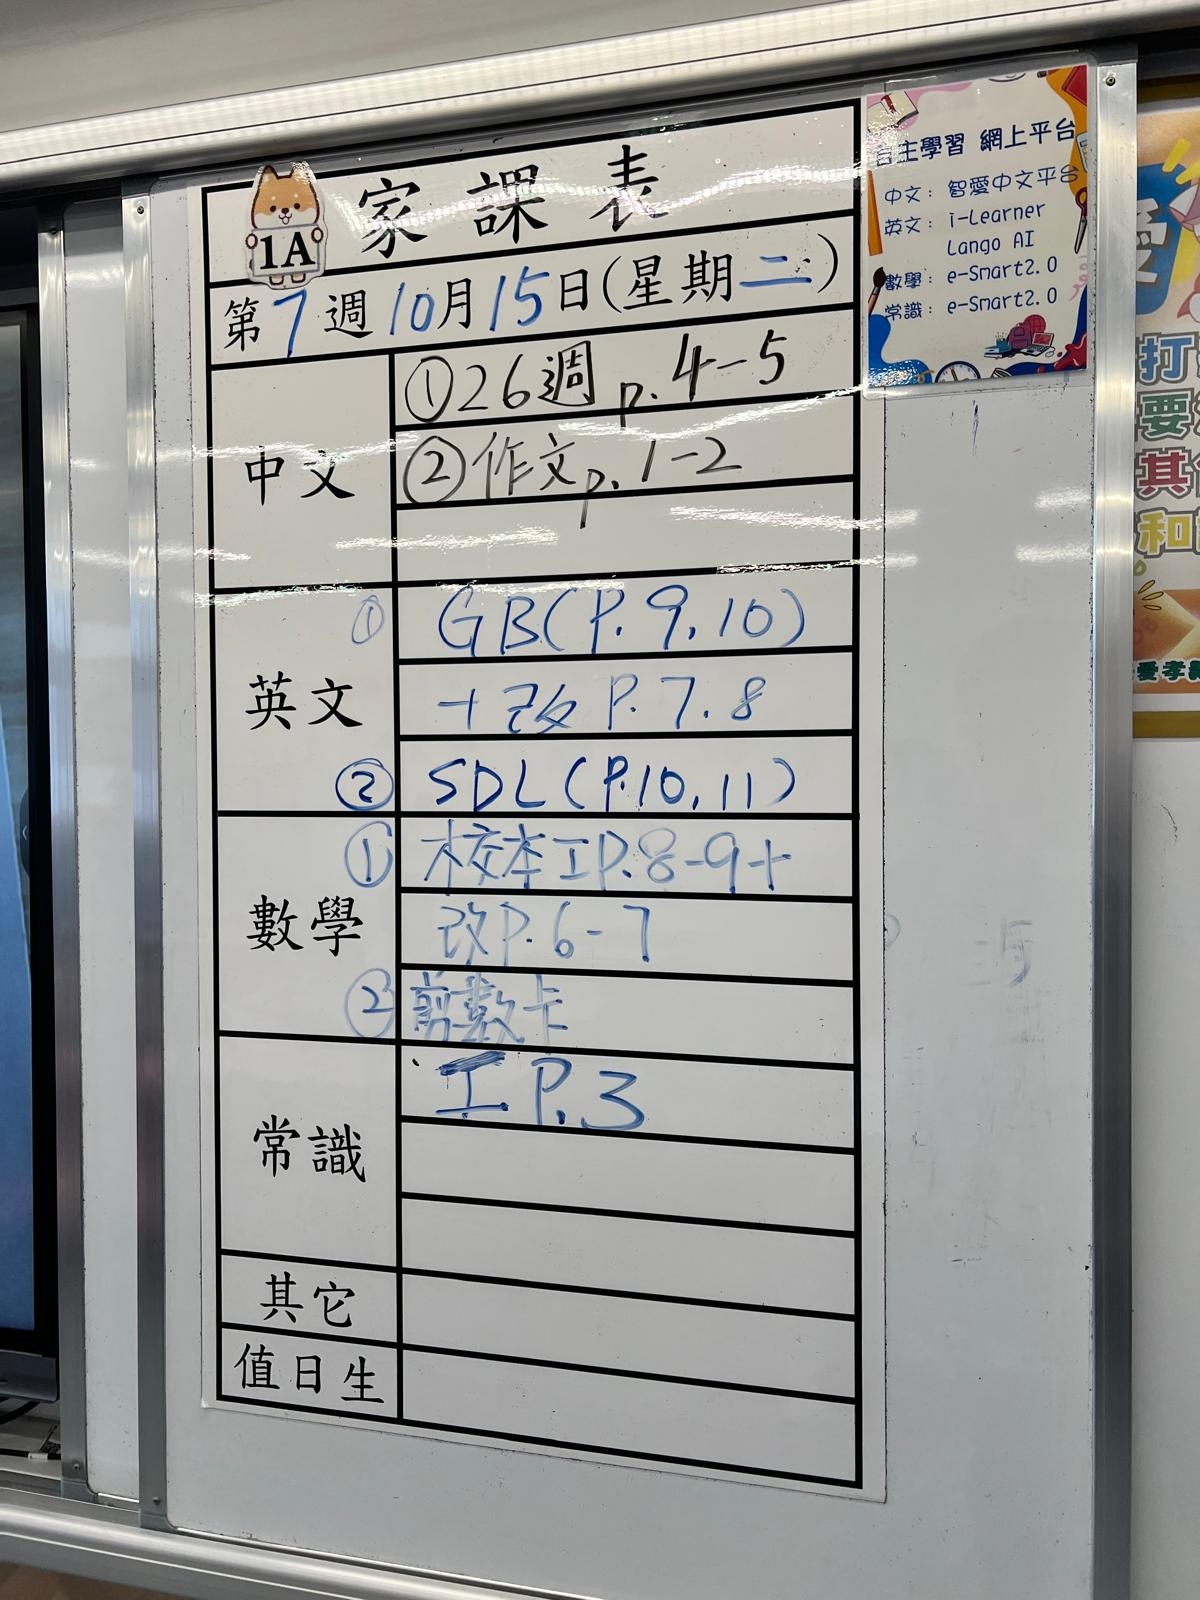 家課表
1A
第7週10月15日(星期二)
中文
①26週 p.4-5
②作文p.1-2
英文
① GB(P.9,10)
+改 P.7.8
② SDL(P.10,11)
數學
① 校本工P.8-9+
改P.6-7
② 剪數卡
常識
工 P.3
其它
值日生
自主學習 網上平台
中文: 智愛中文平台
英文: i-Learner
Lango AI
數學: e-Smart2.0
常識: e-Smart2.0
打
要
其
和
愛孝